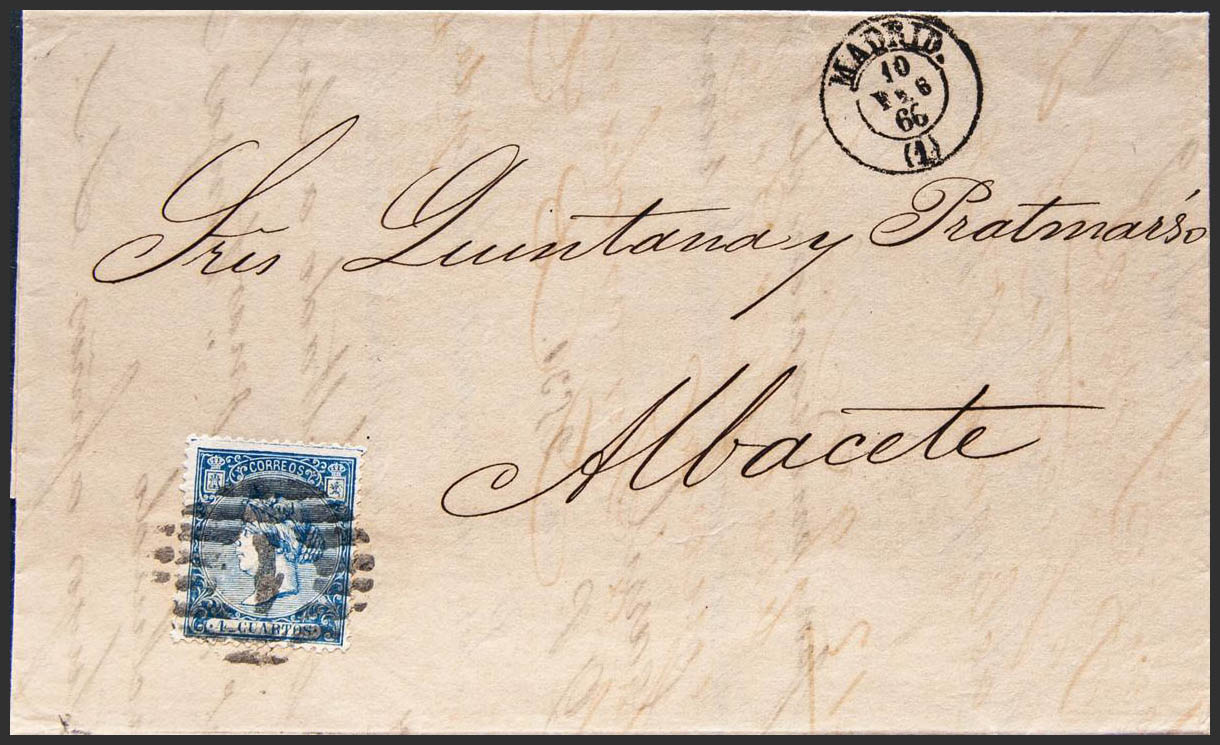 MADRID.
10
FEB
66
(1)
Sres Quintana y Pratmarso
Albacete
CORREOS
4 CUARTOS